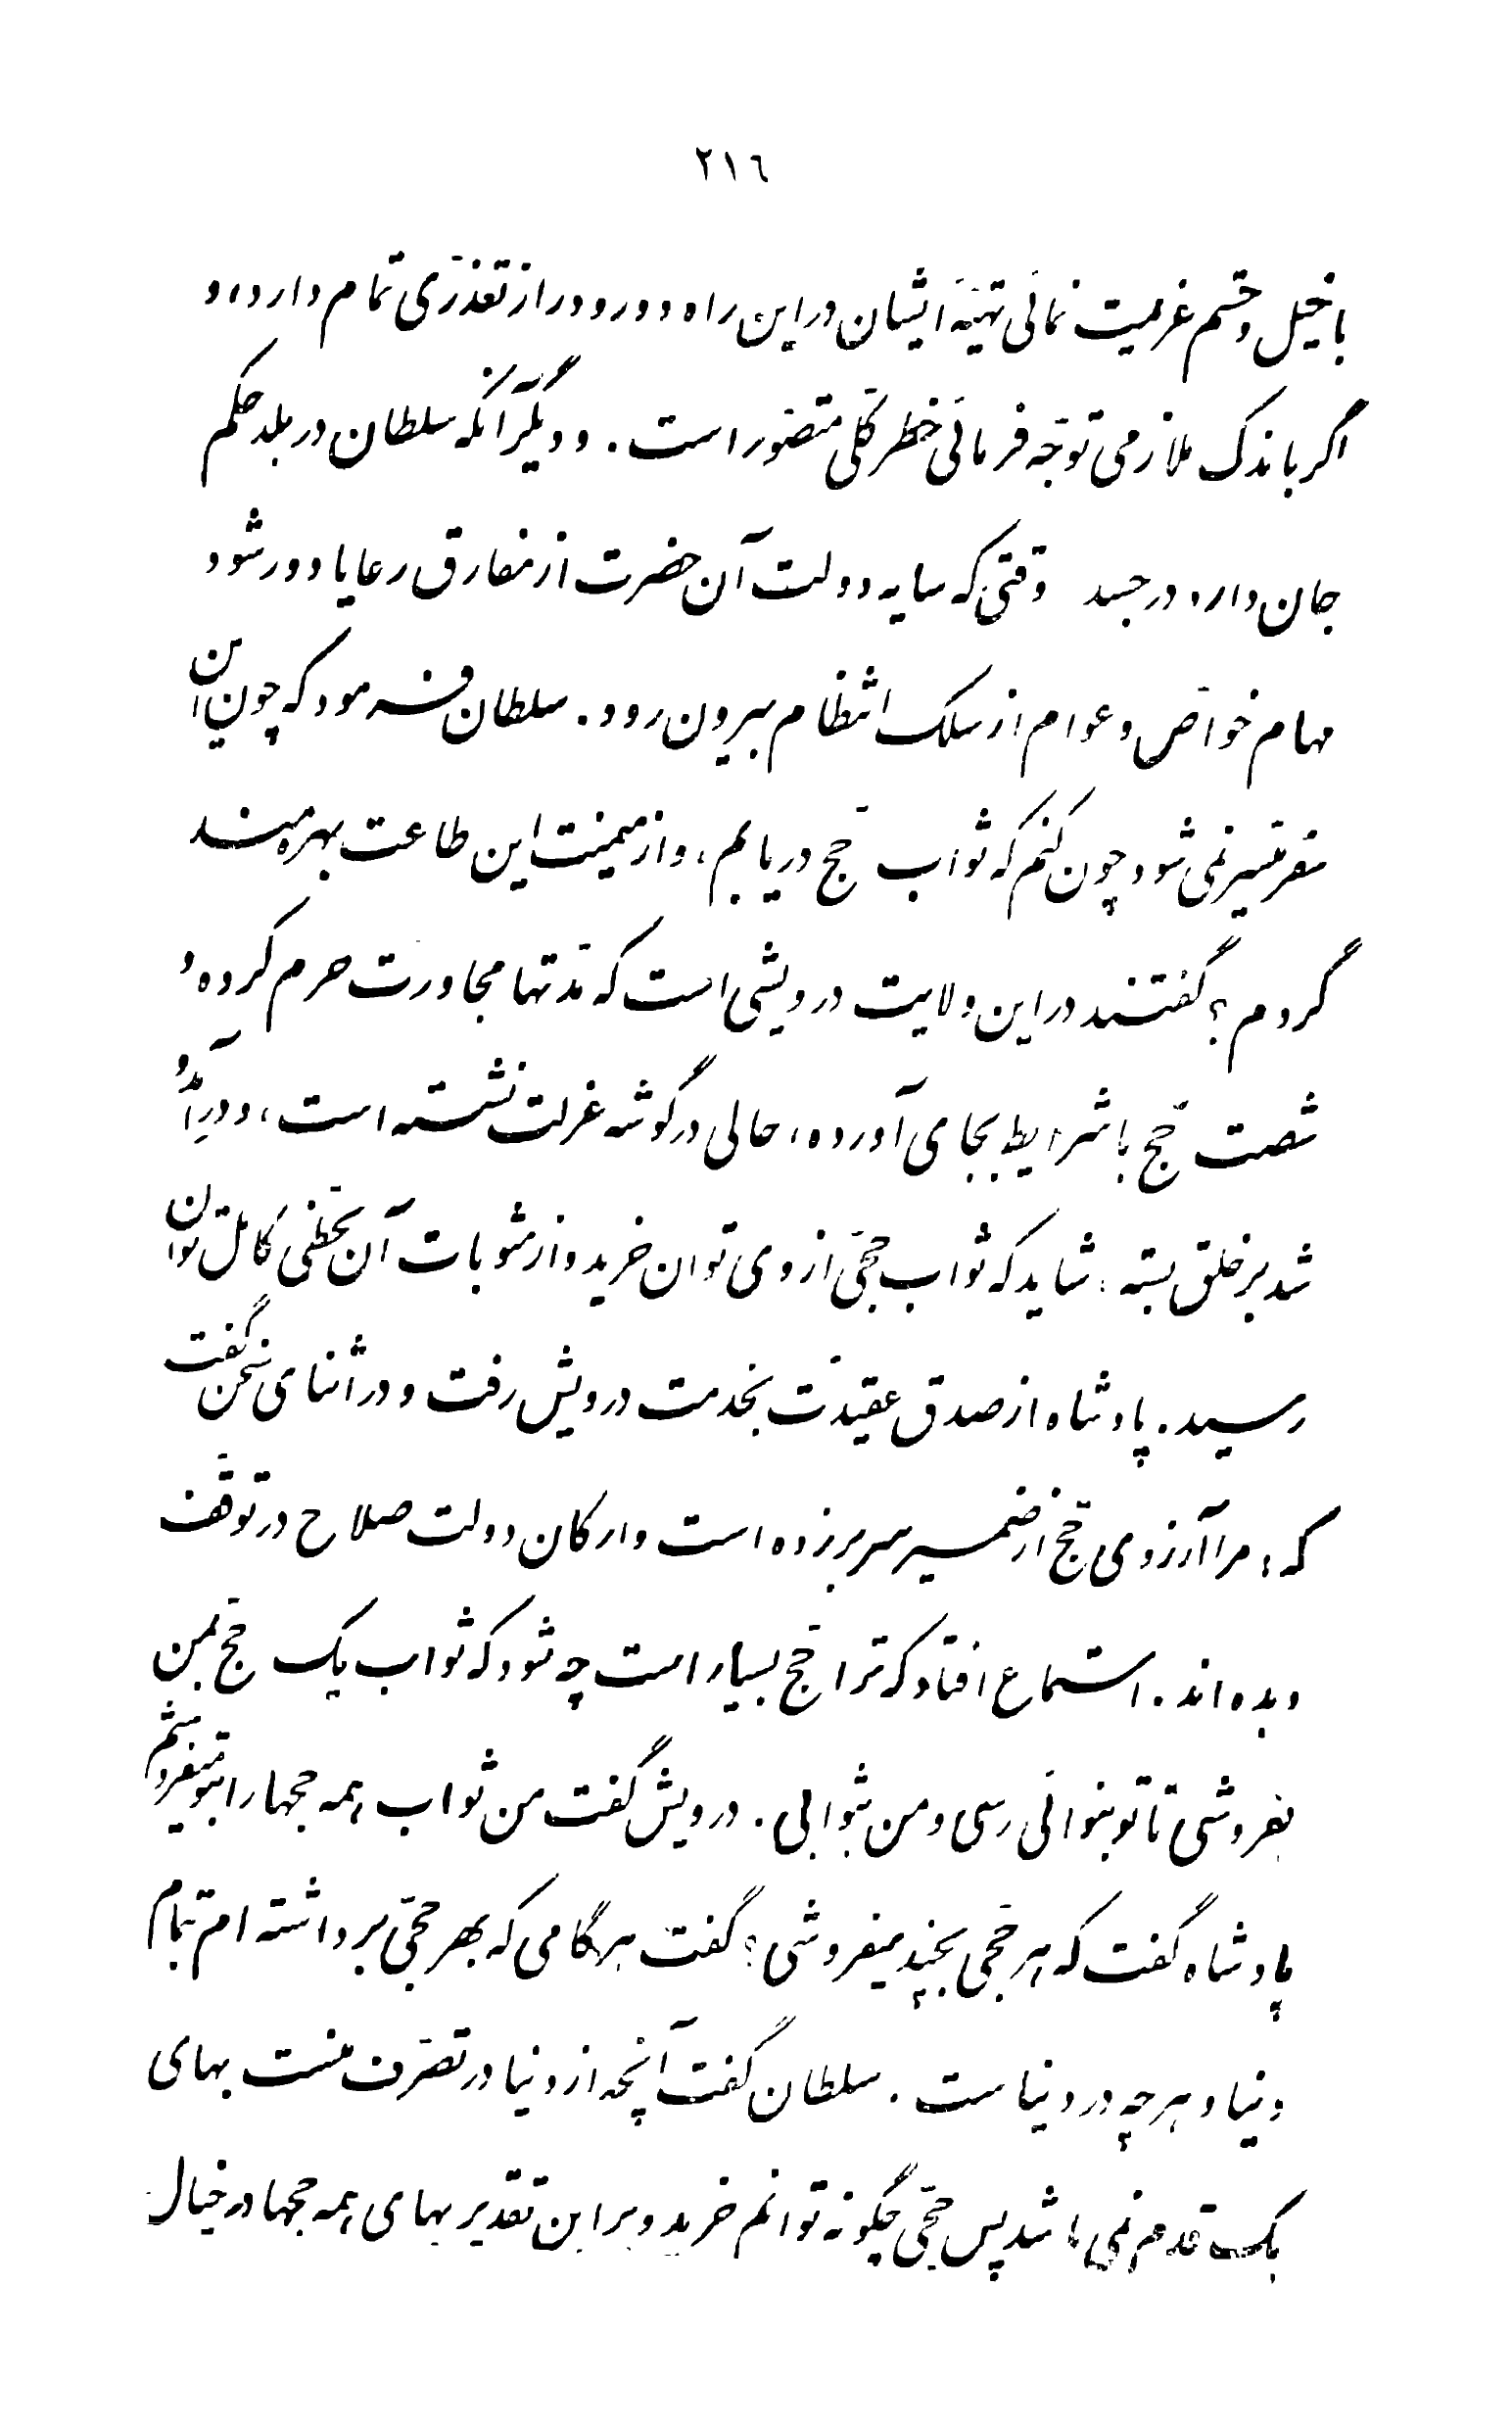 ٢١٦
با خیل و حشم عزیمت نمائی تهیّهٔ ایشان در این راه دور و دراز تعذّری تمام دارد، و
اگر باندک ملازمی توجّه فرمائی خطر کلّی متصّور است. و دیگر آنکه سلطان در بلد حکم
جان دارد در جسد وقتی که سایه دولت آن حضرت از مفارق رعایا دور شود
مهام خواصّ و عوام از سلک انتظام بیرون رود. سلطان فرمود که چون این
سفر میّسر نمی شود چون کنم که ثواب حجّ دریابم، و از میمنت این طاعت بهره مند
گردم؟ گفتند در این ولایت درویشی است که مدّتها مجاورت حرم کرده و
شصت حجّ با شرایط بجای آورده، حالی در گوشه عزلت نشسته است، و در آمد و
شد بر خلق بسته، شاید که ثواب حجّی از وی توان خرید و از مثوبات آن بحظّی کامل توان
رسید. پادشاه از صدق عقیدت بخدمت درویش رفت و در اثنای سخن گفت
که: مرا آرزوی حجّ از ضمیر سر بر زده است و ارکان دولت صلاح در توقّف
دیده اند. استماع افتاد که ترا حجّ بسیار است چه شود که ثواب یک حجّ بمن
بفروشی تا تو بنوائی رسی و من بثوابی. درویش گفت من ثواب همه حجها را بتو میفروشم
پادشاه گفت که هر حجّی بچند میفروشی؟ گفت هر گامی که بهر حجّی برداشته ام بتمام
دنیا و هر چه در دنیاست. سلطان گفت آنچه از دنیا در تصرّف منست بهای
یک قدم نمی باشد پس حجّی چگونه توانم خرید و بر این تقدیر بهای همه حجها در خیال